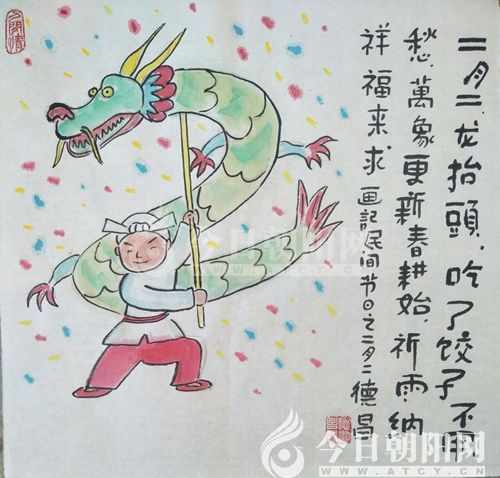 二月二.龙抬頭.吃了饺子不用
愁.萬象更新春耕始.祈雨纳
祥福来求 画記民间节日之二月二德昌
今日朝阳网
WWW.ATCY.CN
今日朝阳网
WWW.ATCY.CN